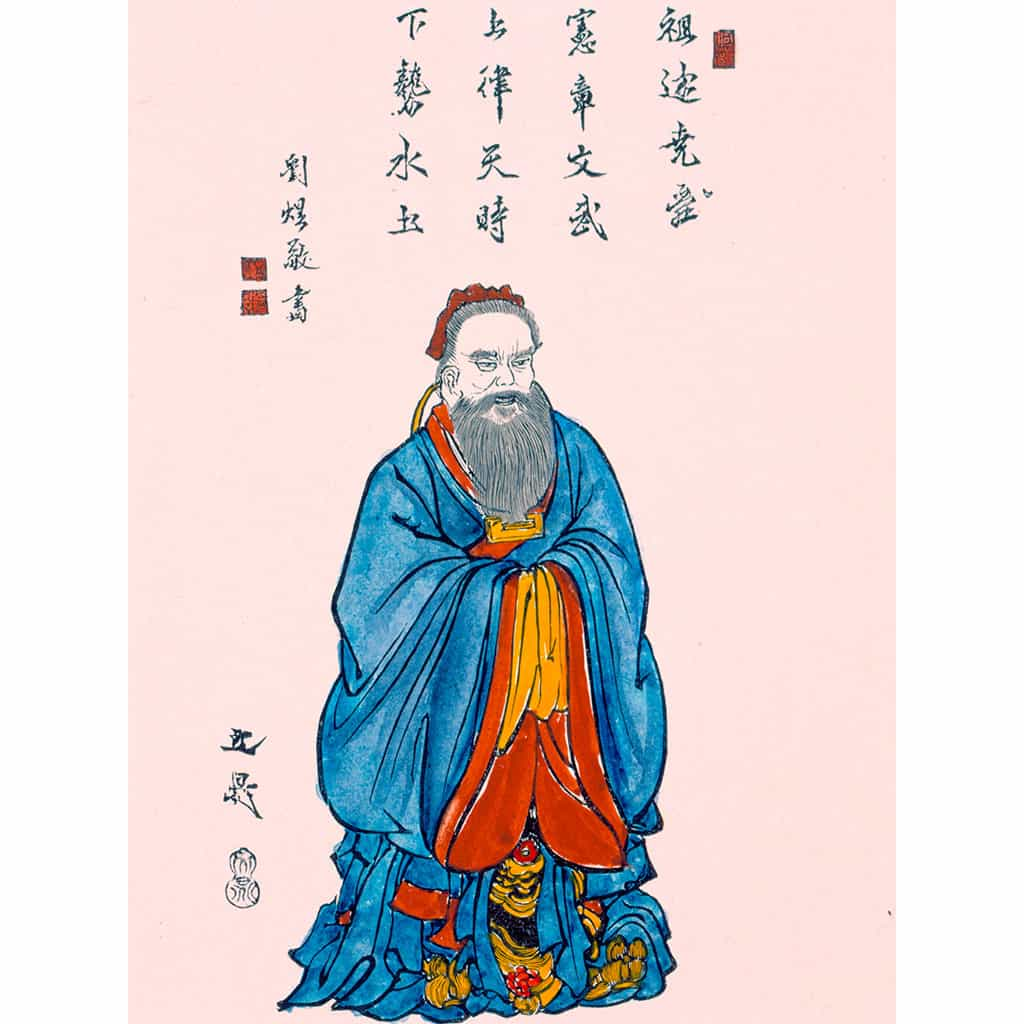 祖述堯舜
憲章文武
上律天時
下襲水土
劉敬書